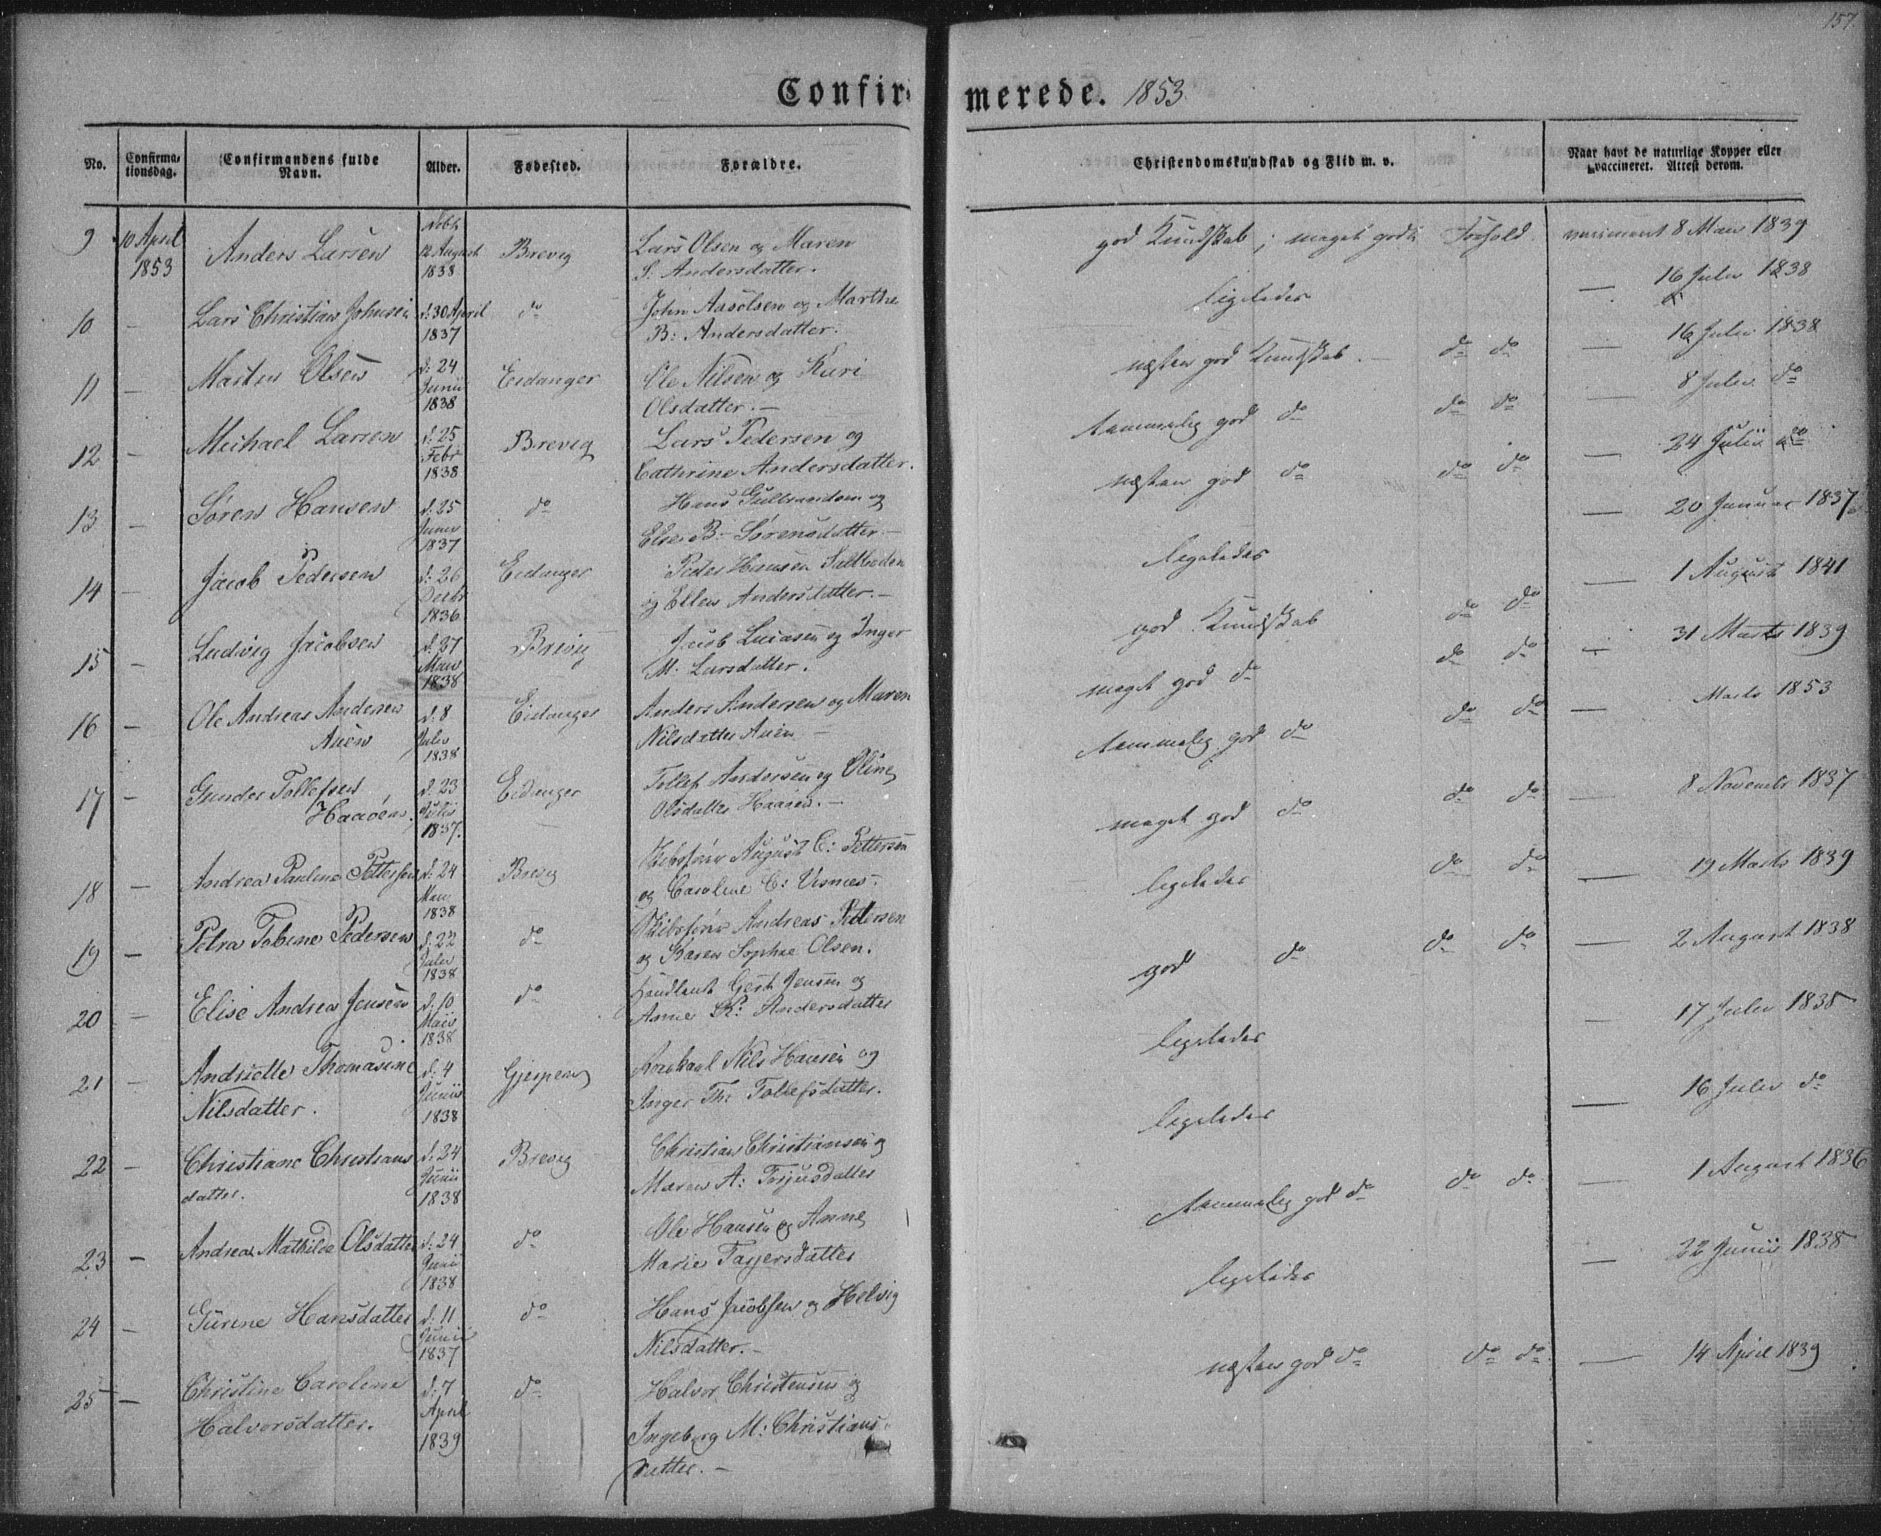 157.
Confir merede. 1853
No. Confirma- tionsdag. Confirmandens fulde Navn. Alder. Fødested. Forældre. Christendomskundskab og Flid m. v. Naar havt de naturlige Kopper eller vaccineret. Attest derom.
9 10 April 1853 Anders Larsen 12 August 1838 Brevig Lars Olsen og Maren
Andersdatter. god Kundskab; meget godt Forhold 8 Mai 1839
10 – Lars Christian Johnsen d. 30 April 1837 do John Aasolsen og Marthe
B: Andersdatter. ligeledes — 16 Julii 1838
11 – Olsen d: 24 Junii 1838 Eidanger Ole Nilsen og
Olsdatter. — næsten god Kundskab. – do do — 16 Julii 1838
12 – Michael Larsen d: 25 Febr 1838 Brevig Lars Pedersen og
Cathrine Andersdatter. temmelig god do do do — 8 Julii do
13 – Søren Hansen d: 25 1837 do Hans Gulbrandsen og
Else B. Sørensdatter — næsten god do do do — 24 Julii do
14 – Jacob Pedersen d: 26 Decbr 1836 Eidanger Peder Hansen Saltboden
og Ellen Andersdatter. — ligeledes — 20 Januar 1837
15 – Ludvig Jacobsen d: 27 Mai 1838 Brevig Jacob og Inger
M. Larsdatter. god Kundskab do do — 1 August 1841
16 – Ole Andreas Andersen
Auen d: 8 Julii 1838 Eidanger Anders Andersen og Maren
Nilsdatter Auen — meget god do do do — 31 Marts 1839
17 – Gunder Tollefsen
Haaøen. d. 23 Julii 1837. Eidanger Tollef Andersen og Oline
Olsdatter Haaøen. — temmelig god do do do — Marts 1853
18 – Andrea Pauline Pettersen d: 24 Mai 1838 Brevig Skibsfører August C: Pettersen
og Caroline C: meget god do do do — 8 November 1837
19 – Petra Tobine Pedersen d: 22 Julii 1838 do Skibsfører Andreas Petersen
og Karen Sophie Olsen. ligeledes do do — 19 Marts 1839
20 – Elise Andrea Jensen d: 10 Maii 1838 do Gert Jensen og
Anne K: Andersdatter god do do do — 2 August 1838
21 – Andrielle Thomasine
Nilsdatter. d: 4 Junii 1838 Gjerpen Nils Hansen og
Inger Th: Tollefsdatter. ligeledes — 17 Julii 1838
22 – Christiane Christians
datter. d: 24 Junii 1838 Brevig Christian Christiansen og
Maren A: Terjusdatter ligeledes — 16 Julii do
23 – Andrea Mathilde Olsdatter d: 24 Junii 1838 do Ole Hansen og Anne
Marie temmelig god do do do — 1 August 1836
24 – Gurine Hansdatter d: 11 Junii 1837 do Hans Jacobsen og Helvig
Nilsdatter. — ligeledes — 22 Junii 1838
25 – Christine Caroline
Halvorsdatter. d: 7 April 1839 do Halvor Christensen og
Ingeborg M: Christians
datter. — næsten god do do do — 14 April 1839